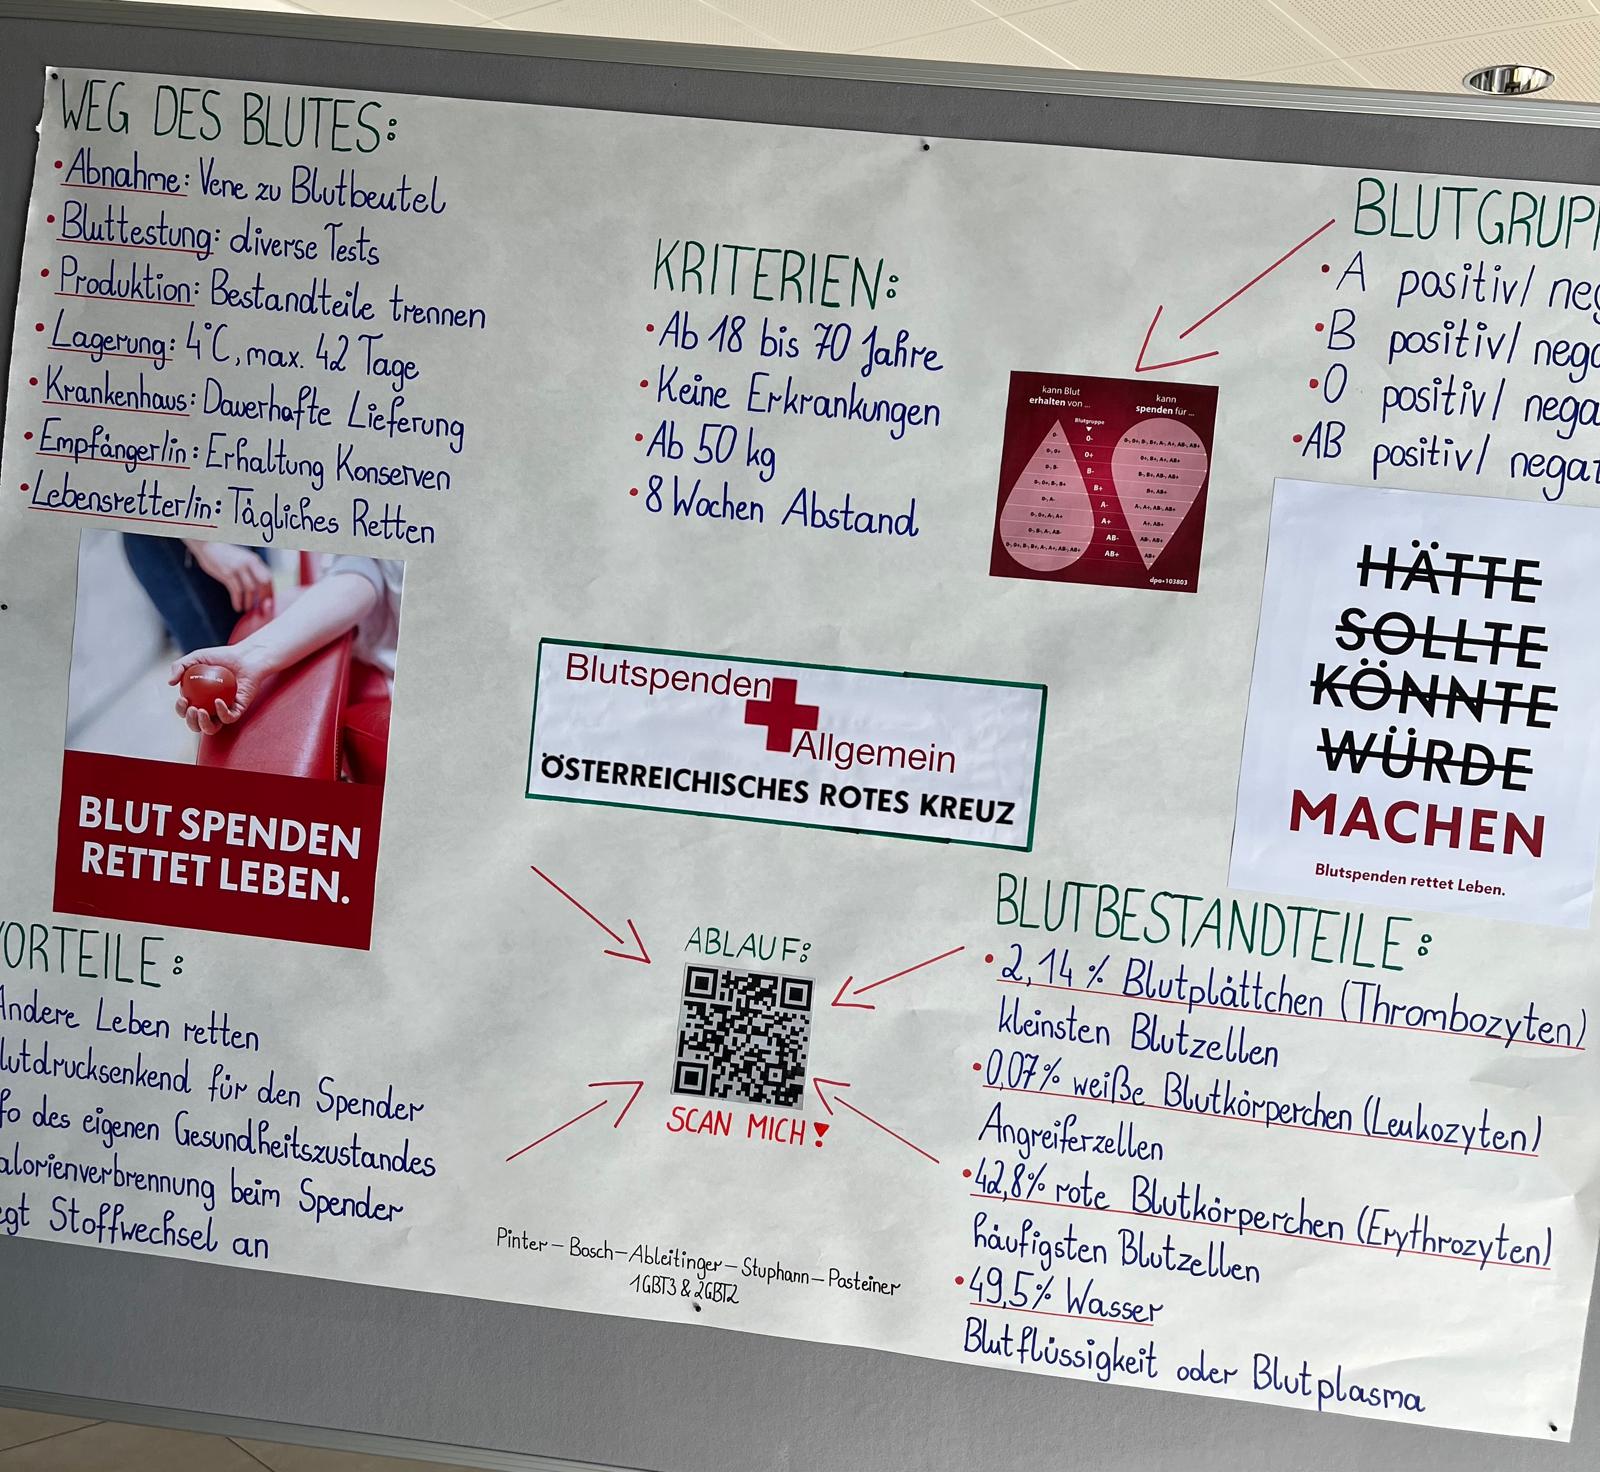 WEG DES BLUTES:
• Abnahme: Vene zu Blutbeutel
• Bluttestung: diverse Tests
• Produktion: Bestandteile trennen
• Lagerung: 4°C, max. 42 Tage
• Krankenhaus: Dauerhafte Lieferung
• Empfänger/in: Erhaltung Konserven
• Lebensretter/in: Tägliches Retten
BLUT SPENDEN
RETTET LEBEN.
ORTEILE:
Andere Leben retten
lutdrucksenkend für den Spender
fo des eigenen Gesundheitszustandes
alorienverbrennung beim Spender
egt Stoffwechsel an
KRITERIEN:
• Ab 18 bis 70 Jahre
• Keine Erkrankungen
• Ab 50 kg
• 8 Wochen Abstand
kann Blut
erhalten von ...
kann
spenden für ...
Blutgruppe
0-
0+
B-
B+
A-
A+
AB-
AB+
dpa•103803
Blutspenden
Allgemein
ÖSTERREICHISCHES ROTES KREUZ
ABLAUF:
SCAN MICH!
Pinter – Bosch – Ableitinger – Stuphann – Pasteiner
1GBT3 & 2GBT2
BLUTGRUPP
• A positiv/ neg
• B positiv/ nega
• 0 positiv/ nega
• AB positiv/ negat
HÄTTE
SOLLTE
KÖNNTE
WÜRDE
MACHEN
Blutspenden rettet Leben.
BLUTBESTANDTEILE:
• 2,14 % Blutplättchen (Thrombozyten)
kleinsten Blutzellen
• 0,07% weiße Blutkörperchen (Leukozyten)
Angreiferzellen
• 42,8% rote Blutkörperchen (Erythrozyten)
häufigsten Blutzellen
• 49,5% Wasser
Blutflüssigkeit oder Blutplasma